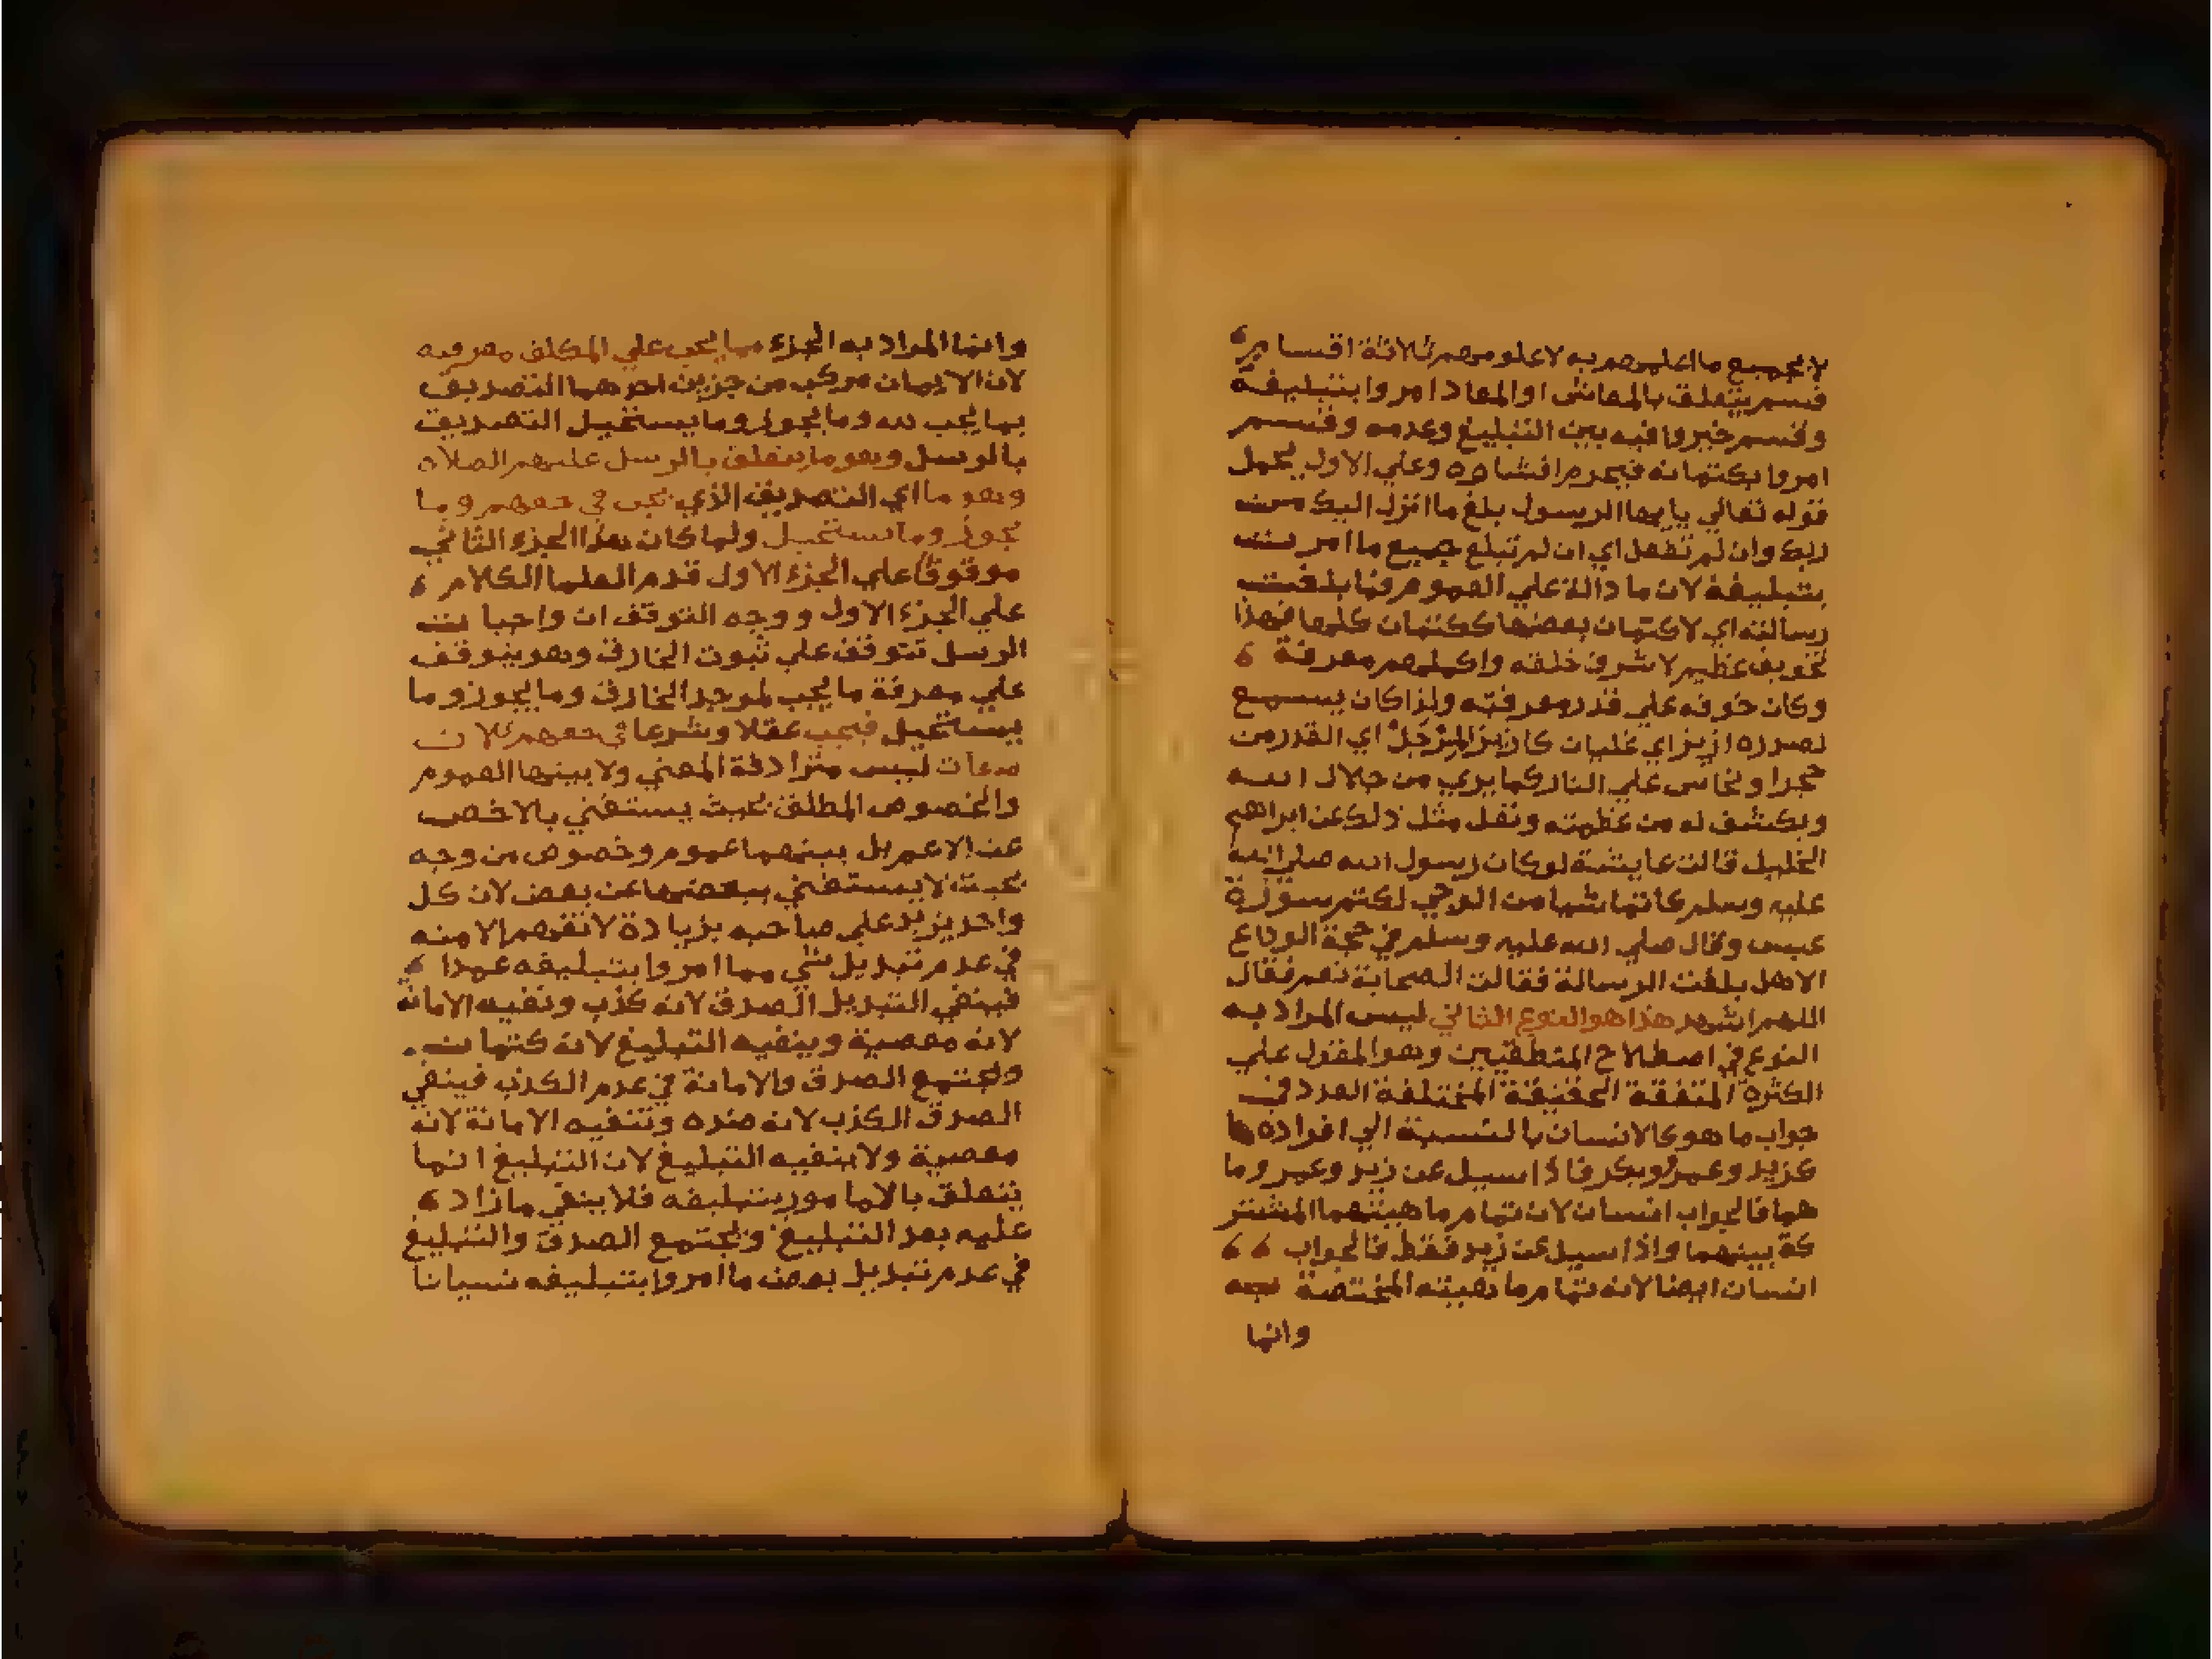 لا لجميع ما اعلمهم به لا علومهم ثلاثة اقسام
قسم يتعلق بالمعاش او المعاد امروا بتبليغه
وقسم خيروا فيه بين التبليغ وعدمه وقسم
امروا بكتمانه فيحرم افشاوه وعلي الاول يحمل
قوله تعالي يايها الرسول بلغ ما انزل اليك من
ربك وان لم تفعل اي ان لم تبلغ جميع ما امرت
بتبليغه لان ما دالة علي العموم فما بلغت
رسالته اي لا كتمان بعضها ككتمان كلها فهذا
تخويف عظيم لاشرف خلقه واكملهم معرفة
وكان خوفه علي قدر معرفته ولذا كان يسمع
لصدره ازيز اي غليان كازيز المرجل اي القدر من
حجر او نحاس علي النار كما يري من جلال الله
ويكشف له من عظمته ونقل مثل ذلك عن ابراهيم
الخليل قالت عايشة لو كان رسول الله صلي الله
عليه وسلم كاتما شيا من الوحي لكتم سورة
عبس وقال صلي الله عليه وسلم في حجة الوداع
الا هل بلغت الرسالة فقالت الصحابة نعم فقال
اللهم اشهد هذا هو النوع الثاني ليس المراد به
النوع في اصطلاح المنطقيين وهو المقول علي
الكثرة المتفقة الحقيقة المختلفة العدد في
جواب ما هو كالانسان بالنسبة الي افراده
كزيد وعمرو وبكر فاذا سيل عن زيد وعمر وما
هما فالجواب انسان لان تمام ماهيتهما المشتر
كة بينهما واذا سيل عن زيد فقط فالجواب
انسان ايضا لانه تمام ماهيته المختصة به
وانما
وانما المراد به الجزء مما يجب علي المكلف معرفته
لان الايمان مركب من جزين احدهما التصديق
بما يجب لله وما يجوز وما يستحيل التصديق
بالرسل وهو ما يتعلق بالرسل عليهم الصلاة
وهو ما اي التصديق الذي يجب في حقهم وما
يجوز وما يستحيل ولما كان هذا الجزء الثاني
موقوفا علي الجزء الاول قدم العلما الكلام
علي الجزء الاول ووجه التوقف ان واجبات
الرسل تتوقف علي ثبوت الخارق وهو يتوقف
علي معرفة ما يجب لموجد الخارق وما يجوز وما
يستحيل فيجب عقلا وشرعا في حقهم ثلاث
صفات ليس مترادفة المعني ولا بينها العموم
والخصوص المطلق بحيث يستغني بالاخص
عن الاعم بل بينهما عموم وخصوص من وجه
بحيث لا يستغني ببعضها عن بعض لان كل
واحد يزيد علي صاحبه بزيادة لا تفهم الا منه
في عدم تبديل شي مما امروا بتبليغه عمدا
فينفي التبديل الصدق لانه كذب وتنفيه الامانة
لانه معصية وينفيه التبليغ لانه كتمان
وتجتمع الصدق والامانة في عدم الكذب فينفي
الصدق الكذب لانه ضده وتنفيه الامانة لانه
معصية ولا ينفيه التبليغ لان التبليغ انما
يتعلق بالامامور بتبليغه فلا ينفي ما زاد
عليه بعد التبليغ ويجتمع الصدق والتبليغ
في عدم تبديل بعض ما امروا بتبليغه نسيانا